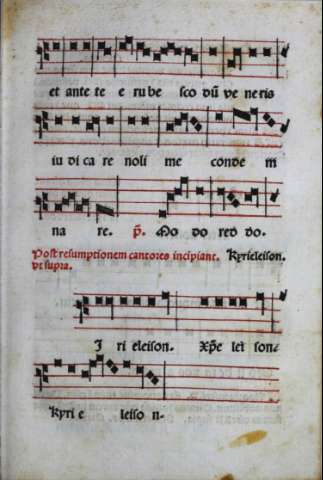 et ante te e rube sco dū ve neris
iu di ca re noli me conde m
na re. p̄. Mo do red do.
Post resumptionem cantores incipiant. Kyrieleison.
vt supra.
J ri eleison. xp̄e lei son
kyri e leiso n.